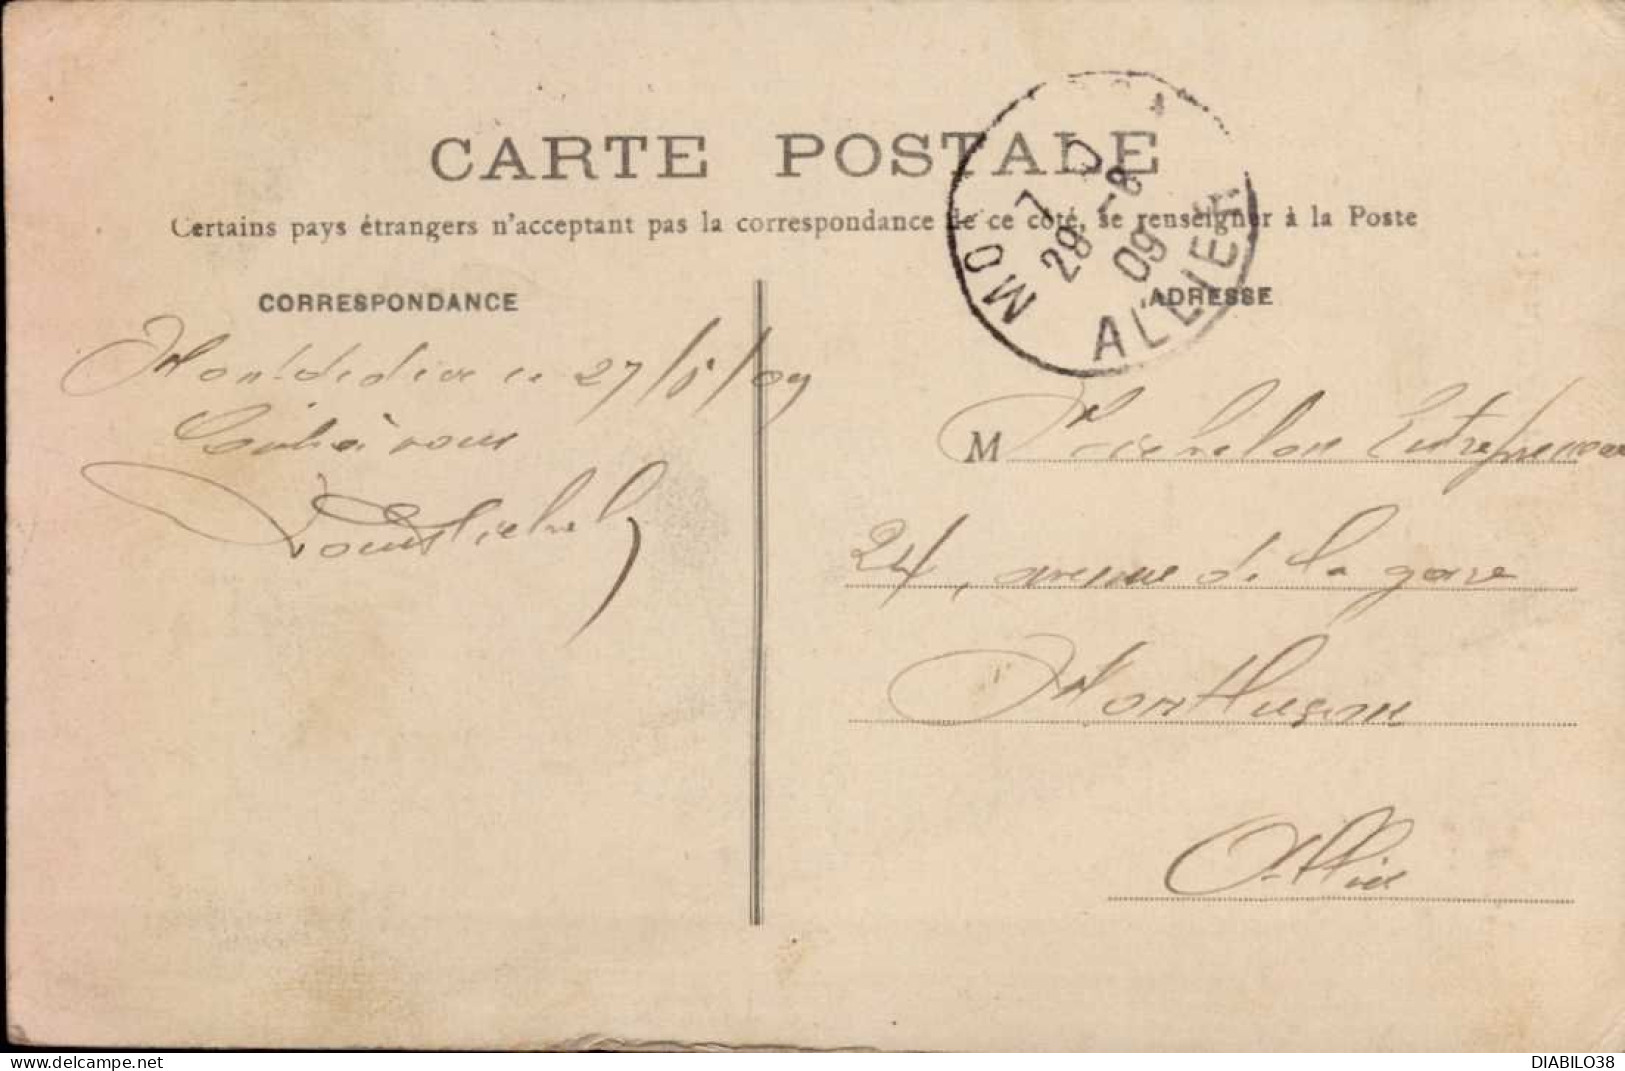 CARTE POSTALE
Certains pays étrangers n'acceptent pas la correspondance de ce côté, se renseigner à la Poste
CORRESPONDANCE
ADRESSE
MO
7
29 -8
09
ALLIER
Montdidier le 27/8/09
à vous
M Entrepreneur
24, avenue de la gare
Montluçon
Allier
delcampe.net
DIABILO38